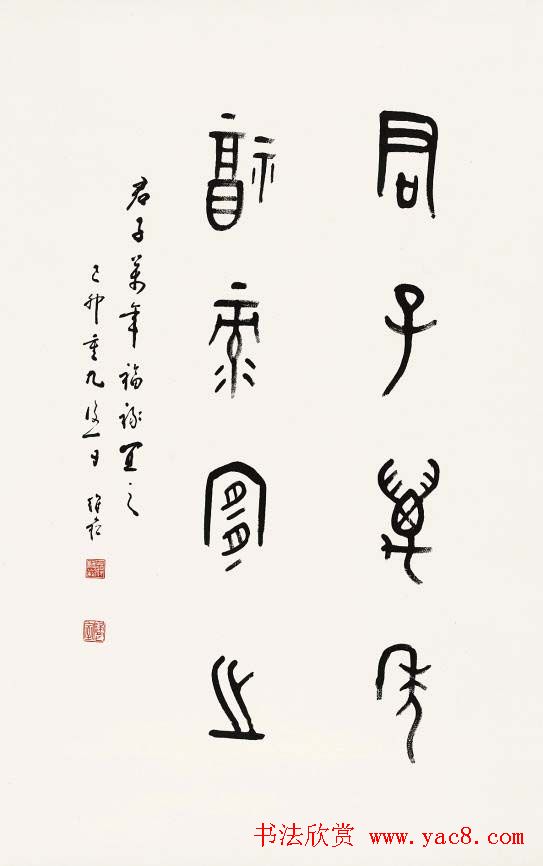 君子萬年
福祿宜之
君子萬年福祿宜之
己卯重九後一日
书法欣赏 www.yac8.com